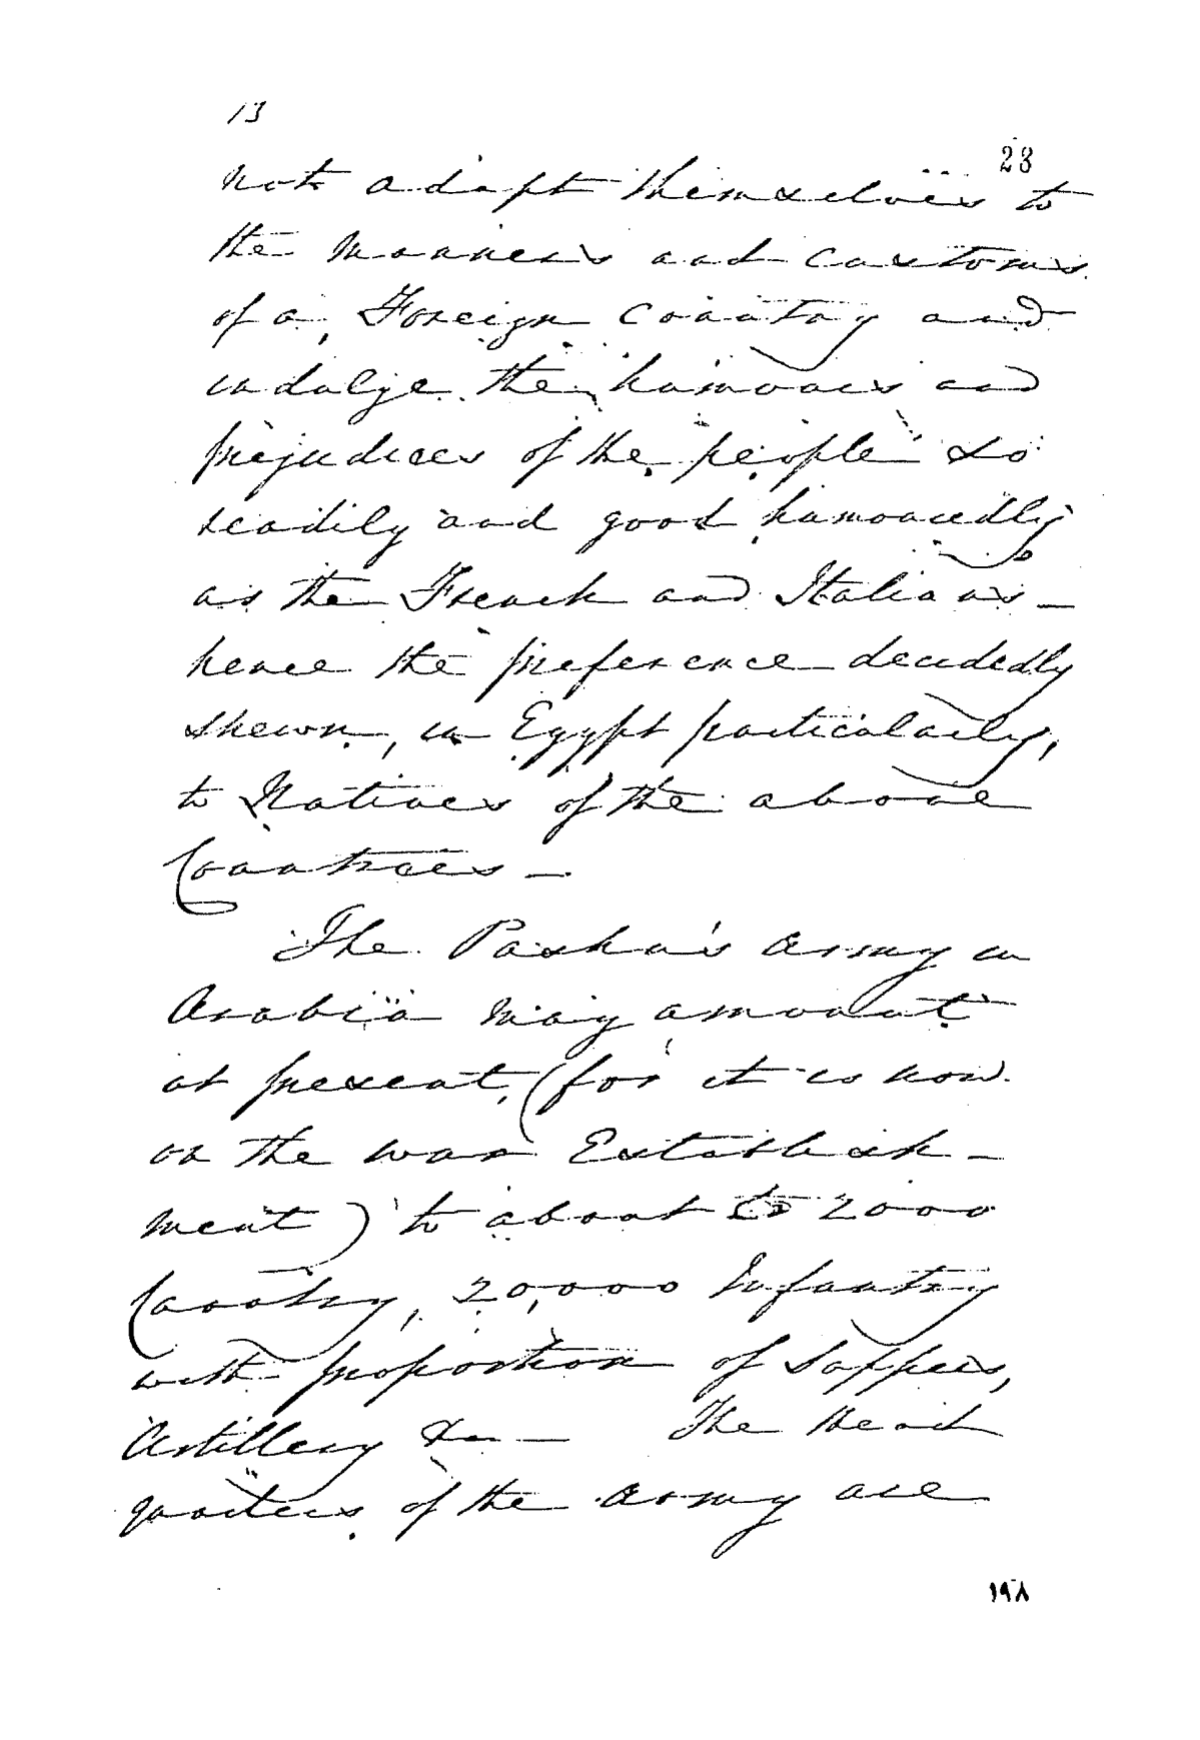 13
23
not adapt themselves to
the manners and customs
of a Foreign Country and
indulge the humours and
prejudices of the people so
readily and good humouredly
as the French and Italians —
hence the preference decidedly
shewn, in Egypt particularly,
to Natives of the above
Countries —
The Pasha's Army in
Arabia may amount
at present, (for it is now
on the war Establish -
ment) to about 2000
Cavalry, 20,000 Infantry
with proportion of Sappers,
Artillery &c — The Head
quarters of the Army are
١٩٨